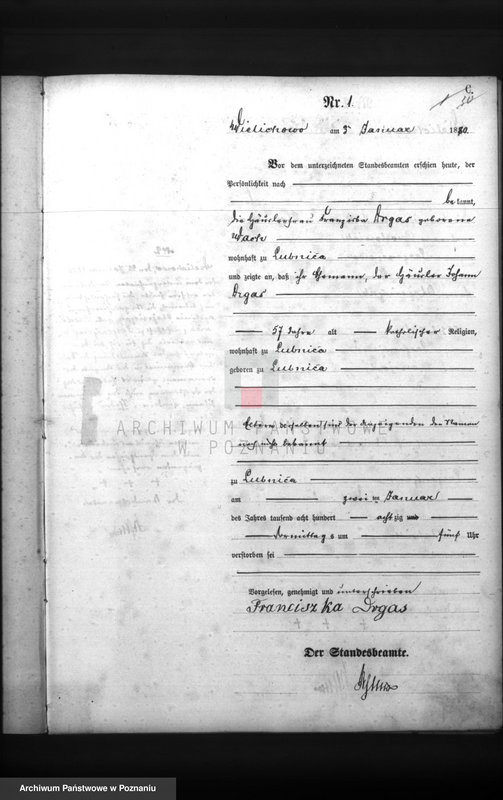 C.
50
Nr. 1.
Wielichowo am 5 Januar 1880.
Vor dem unterzeichneten Standesbeamten erschien heute, der
Persönlichkeit nach
bekannt,
die Häuslerfrau Franziska Drgas geborene
wohnhaft zu Lubnica
und zeigte an, daß ihr Ehemann, der Häusler Johann
Drgas
57 Jahre alt katholischer Religion,
wohnhaft zu Lubnica
geboren zu Lubnica
Eltern desselben sind der Anzeigenden dem Namen
nach nicht bekannt
ARCHIWUM PAŃSTWOWE
W POZNANIU
zu Lubnica
am zweiten Januar
des Jahres tausend acht hundert achtzig und
Vormittags um fünf Uhr
verstorben sei
Vorgelesen, genehmigt und unterschrieben
Franciszka Drgas
Der Standesbeamte.
Archiwum Państwowe w Poznaniu